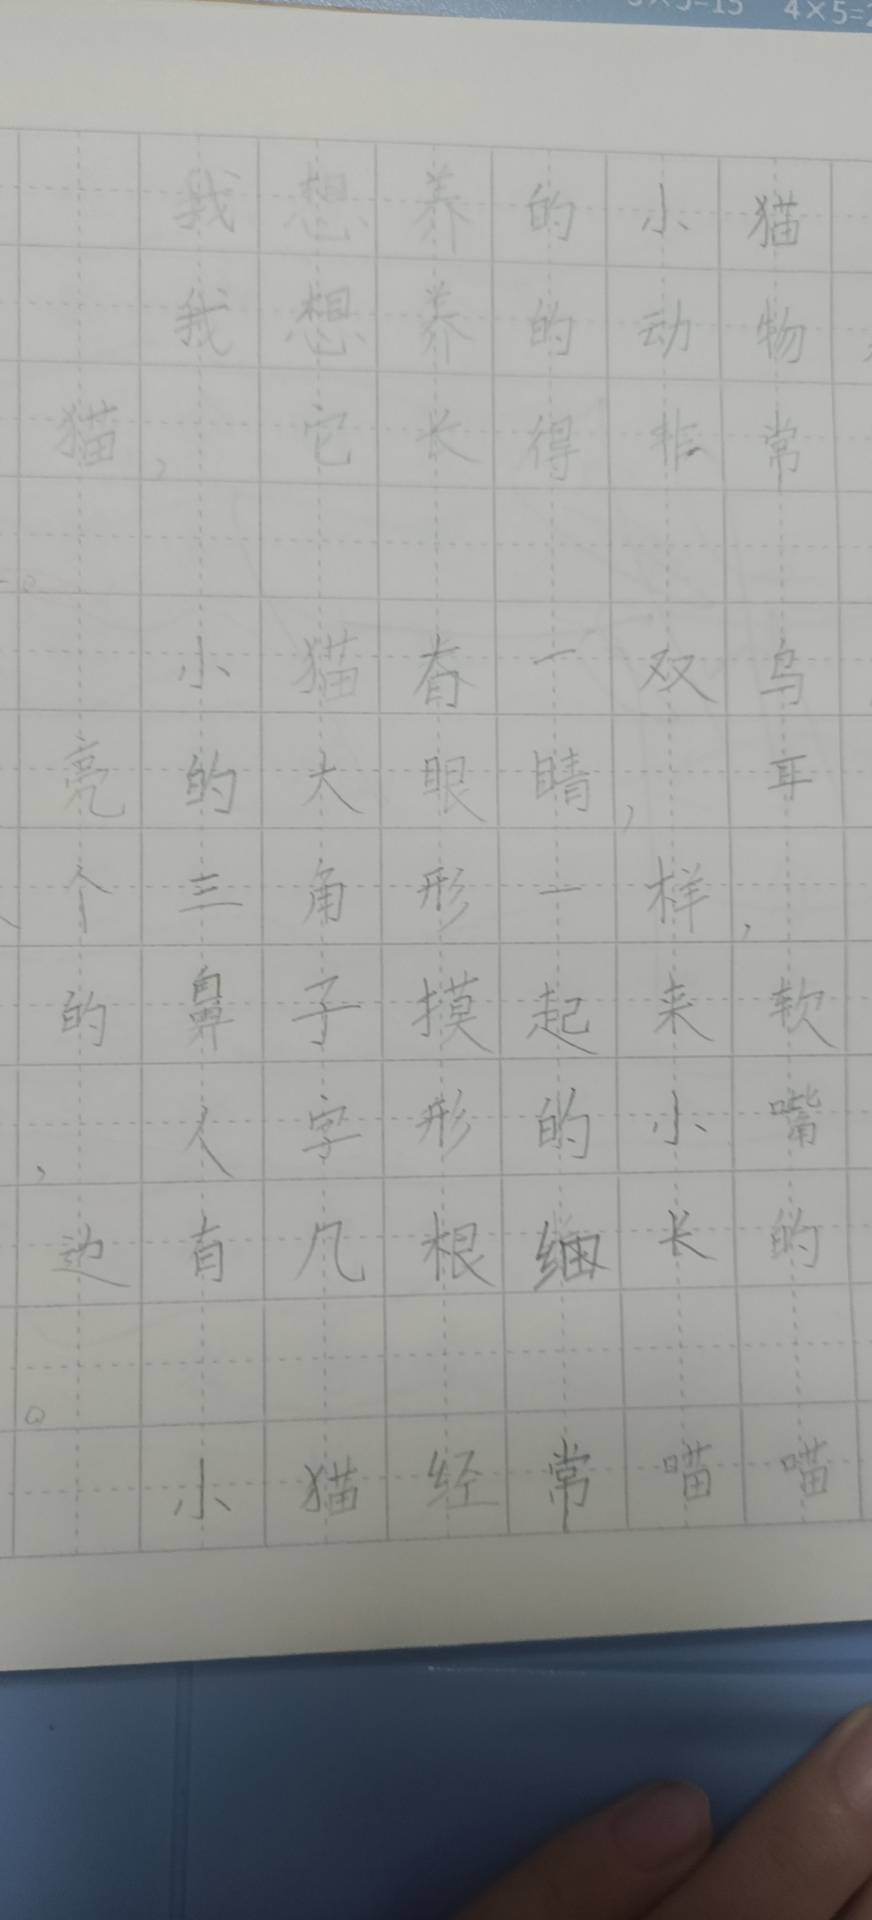 3×5=15 4×5=2
我想养的小猫
我想养的动物,
猫,它长得非常
。
小猫有一双乌
亮的大眼睛,耳
个三角形一样,
的鼻子摸起来软
,人字形的小嘴
边有几根细长的
。
小猫经常喵喵